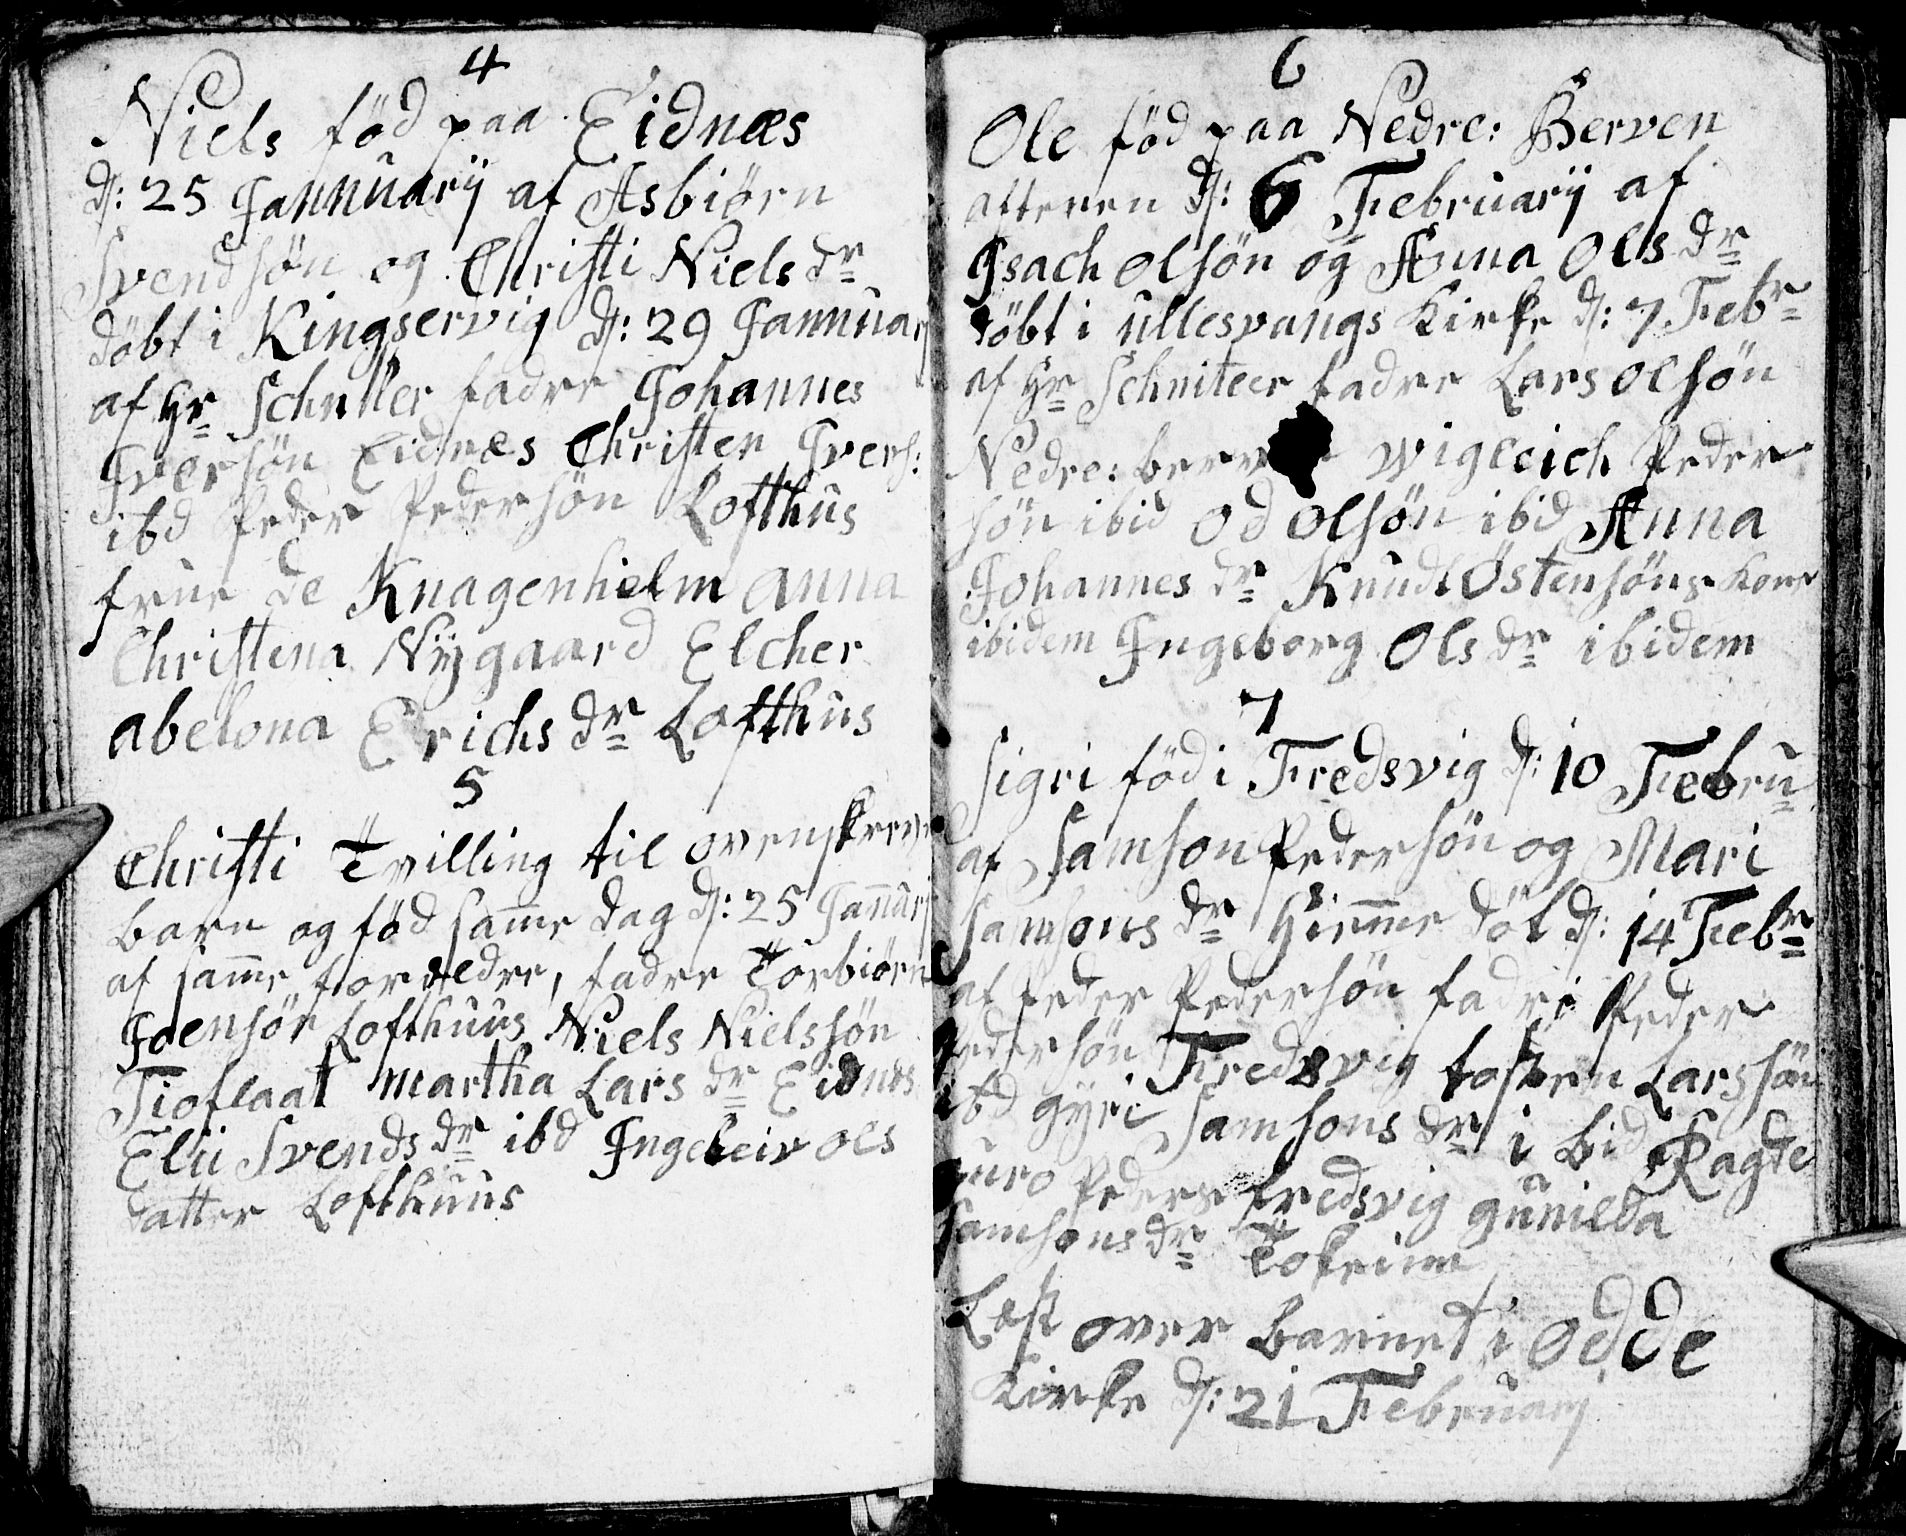 4
Niels föd paa Eidnæs
d: 25 Jannuarÿ af Asbiørn
Svendsøn og Christi Niels dr
döbt i Kingservig d: 29 Jannuarj
af Hr Schnitler fadre Johannes
Iversön Eidnæs Christen Ivers:
ibd Peder Pedersön Lofthus
frue de Knagenhielm anna
Christena Nÿgaard Elcher
abelona Erichs dr Lofthus
5
Christi Tvilling til ovenskrevne
barn og föd samme dag d: 25 Januarj
af samme forældre, fadre Torbiørn
Joensön Lofthuus Niels Nielssön
Tioflaat Martha Lars dr Eidnes
Elii Svends dr ibd Ingeleiv ols
datter Lofthuus
6
Ole föd paa Nedre: Berven
afteren d: 6 Februarÿ af
Isach olsön og Anna Ols dr
döbt i ullesvangs Kirke d: 7 Febr
af Hr Schniteer fadre Lars olsön
Nedre: berven wigleich Peder
sön ibid Od olsön ibid Anna
Johannes dr Knudt Østensöns Kone
ibidem Ingeborg Ols dr ibidem
7
Sigri född i Fredsvig d: 10 Febru
af Samson Pedersön og Mari
Samsons dr Hiemme döbt d: 14 Febr
af Peder Pedersön fadre Peder
Pedersön Fredsvig tosten Larssön
ibd gyri Samsons dr i bid Ragde
guro Peders fredsvig gunilda
Samsons dr
Lest over barnet i Odde
Kirke d: 21 Februarj